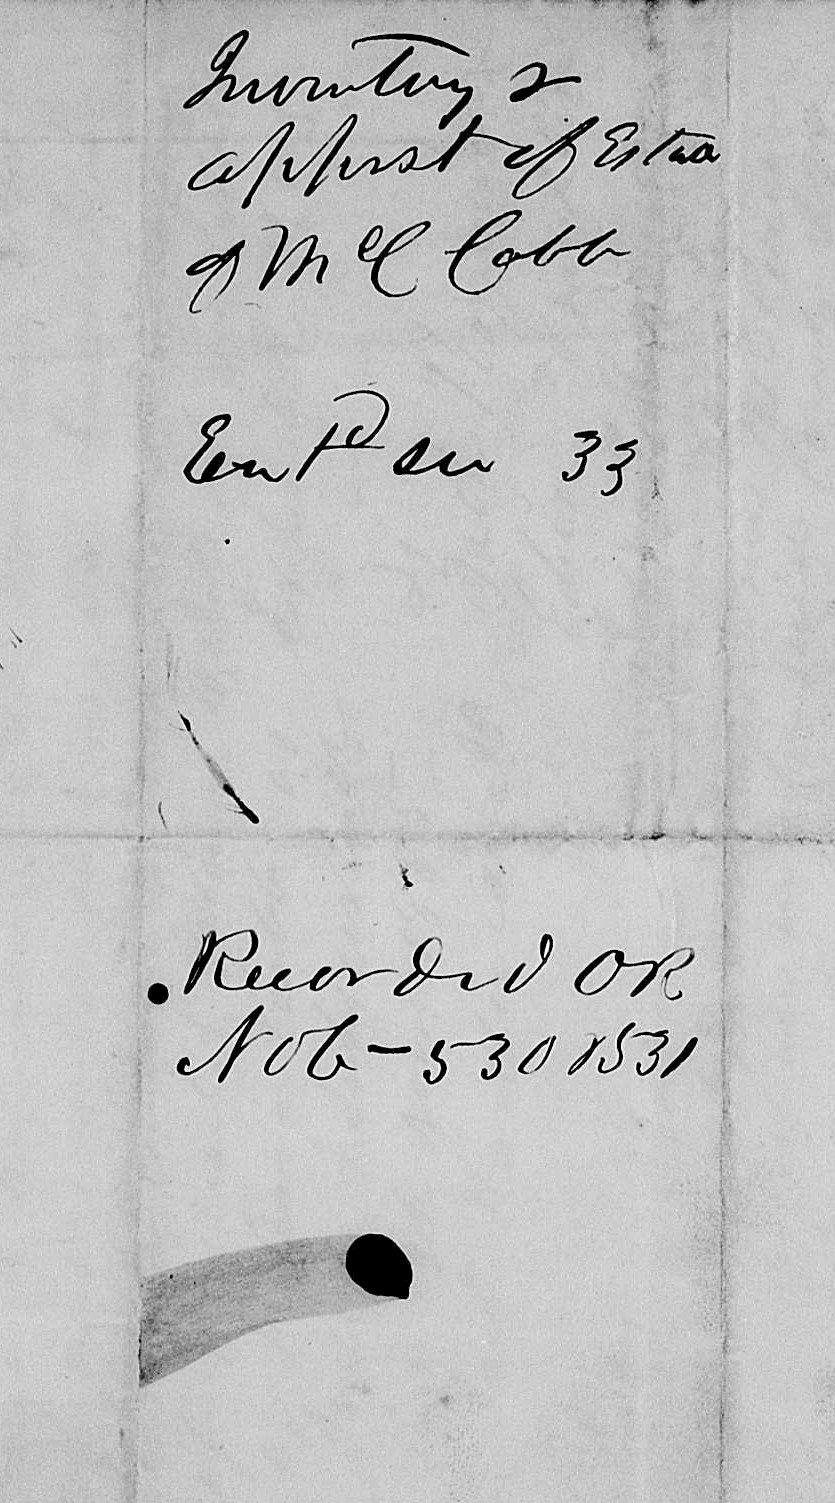 Inventory &
apprst of Esta
of McC Cobb
Ent^d 33
Recorded OR
No 6 - 530 & 531